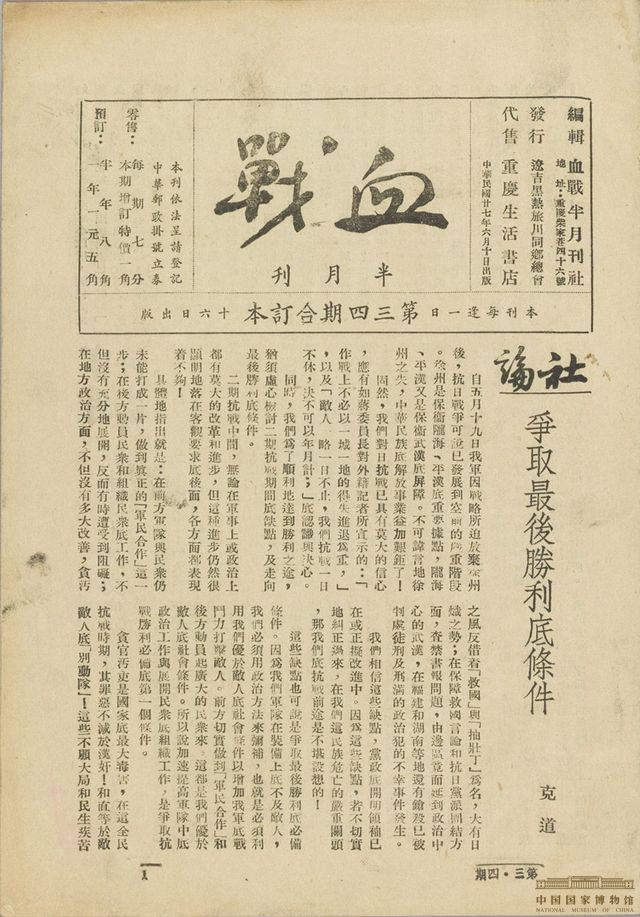 編輯 血戰半月刊社
地址：重慶柴家巷四十六號
發行 遼吉黑熱旅川同鄉總會
代售 重慶生活書店
中華民國廿七年六月十日出版
血戰
半月刊
本刊依法呈請登記
中華郵政掛號立券
零售：每期七分
本期增訂特價一角
預訂：半年八角
一年一元五角
本刊每逢一日十六日出版
第三四期合訂本
社論
爭取最後勝利底條件
克道
自五月十九日我軍因戰略所迫放棄徐州
後，抗日戰爭可說已發展到空前的嚴重階段
。徐州是保衛隴海、平漢底重要據點，隴海
、平漢又是保衛武漢底屏障。不可諱言地徐
州之失，中華民族底解放事業益加艱鉅了！
固然，我們對日抗戰已具有莫大的信心
，應有如蔣委員長對外籍記者所宣示的：「
作戰上不必以一城一地的得失進退爲重，」
，以及「敵人一略一日不止，我們抗戰一日
不休，決不可以年月計；」底認識與決心。
同時，我們爲了順利地達到勝利之途，
猶須虛心檢討二期抗戰期間底缺點，及走向
最後勝利底條件。
二期抗戰中間，無論在軍事上或政治上
都有莫大的改革和進步，但這種進步仍然很
顯明地落在客觀要求底後面，各方面都表現
着不夠！
具體地指出就是：在前方軍隊與民衆仍
未能打成一片，做到眞正的「軍民合作」這一
步；在後方動員民衆和組織民衆底工作，不
但沒有充分地展開，反而有時遭受到阻礙；
在地方政治方面，不但沒有多大改善，貪汚
之風反借着「救國」與「抽壯丁」爲名，大有日
熾之勢；在保障救國言論和抗日黨派團結方
面，查禁書報問題，由邊區而延到政治中
心的武漢，在福建和湖南等地還有鎗殺已被
判處徒刑及刑滿的政治犯的不幸事件發生。
我們相信這些缺點，黨政底開明領袖已
在或正擬改進中。因爲這些缺點，若不切實
地糾正過來，在我們這民族危亡的嚴重關頭
，那我們底抗戰前途是不堪設想的！
這些缺點也可說是爭取最後勝利底必備
條件。因爲我們軍隊在裝備上底不及敵人，
我們必須用政治方法來彌補，也就是必須利
用我們優於敵人底社會條件以增加我軍底戰
鬥力打擊敵人。前方切實做到「軍民合作」和
後方動員起廣大的民衆來。這都是我們優於
敵人底社會條件。所以說加速提高軍隊中底
政治工作與展開民衆底組織工作，是爭取抗
戰勝利必備底第一個條件。
貪官汚吏是國家底最大毒害，在這全民
抗戰時期，其罪惡不減於漢奸！和直等於敵
敵人底「別動隊」！這些不顧大局和民生疾苦
第三・四期
1
中国国家博物馆
NATIONAL MUSEUM OF CHINA